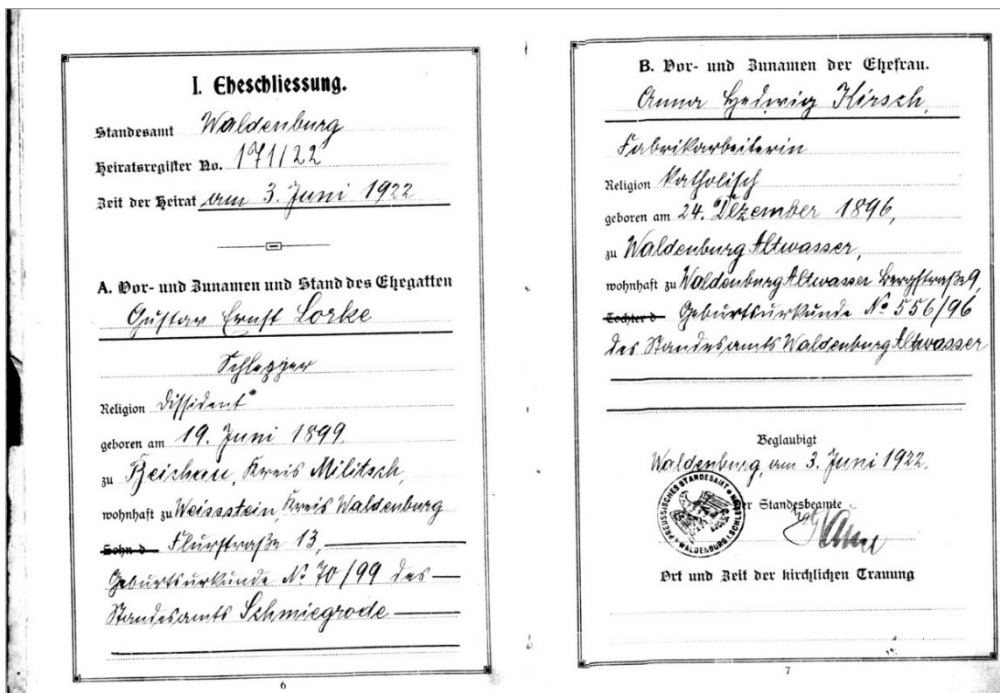 I. Eheschliessung.
Standesamt Waldenburg
Heiratsregister No. 171/22
Zeit der Heirat am 3. Juni 1922
A. Vor- und Zunamen und Stand des Ehegatten
Gustav Ernst Lorke
Schlepper
Religion Dissident
geboren am 19. Juni 1899.
zu Beichau, Kreis Militsch,
wohnhaft zu Weissstein, Kreis Waldenburg
Sohn d Flurstraße 13,
Geburtsurkunde No 70/99 des
Standesamts Schmiegrode
6
B. Vor- und Zunamen der Ehefrau.
Anna Hedwig Kirsch,
Fabrikarbeiterin
Religion katholisch
geboren am 24. Dezember 1896,
zu Waldenburg Altwasser,
wohnhaft zu Waldenburg Altwasser Bergstraße 9,
Tochter d Geburtsurkunde No 556/96
des Standesamts Waldenburg Altwasser
Beglaubigt
Waldenburg, am 3. Juni 1922.
Der Standesbeamte
PREUSSISCHES STANDESAMT
WALDENBURG I. SCHLES.
Ort und Zeit der kirchlichen Trauung
7